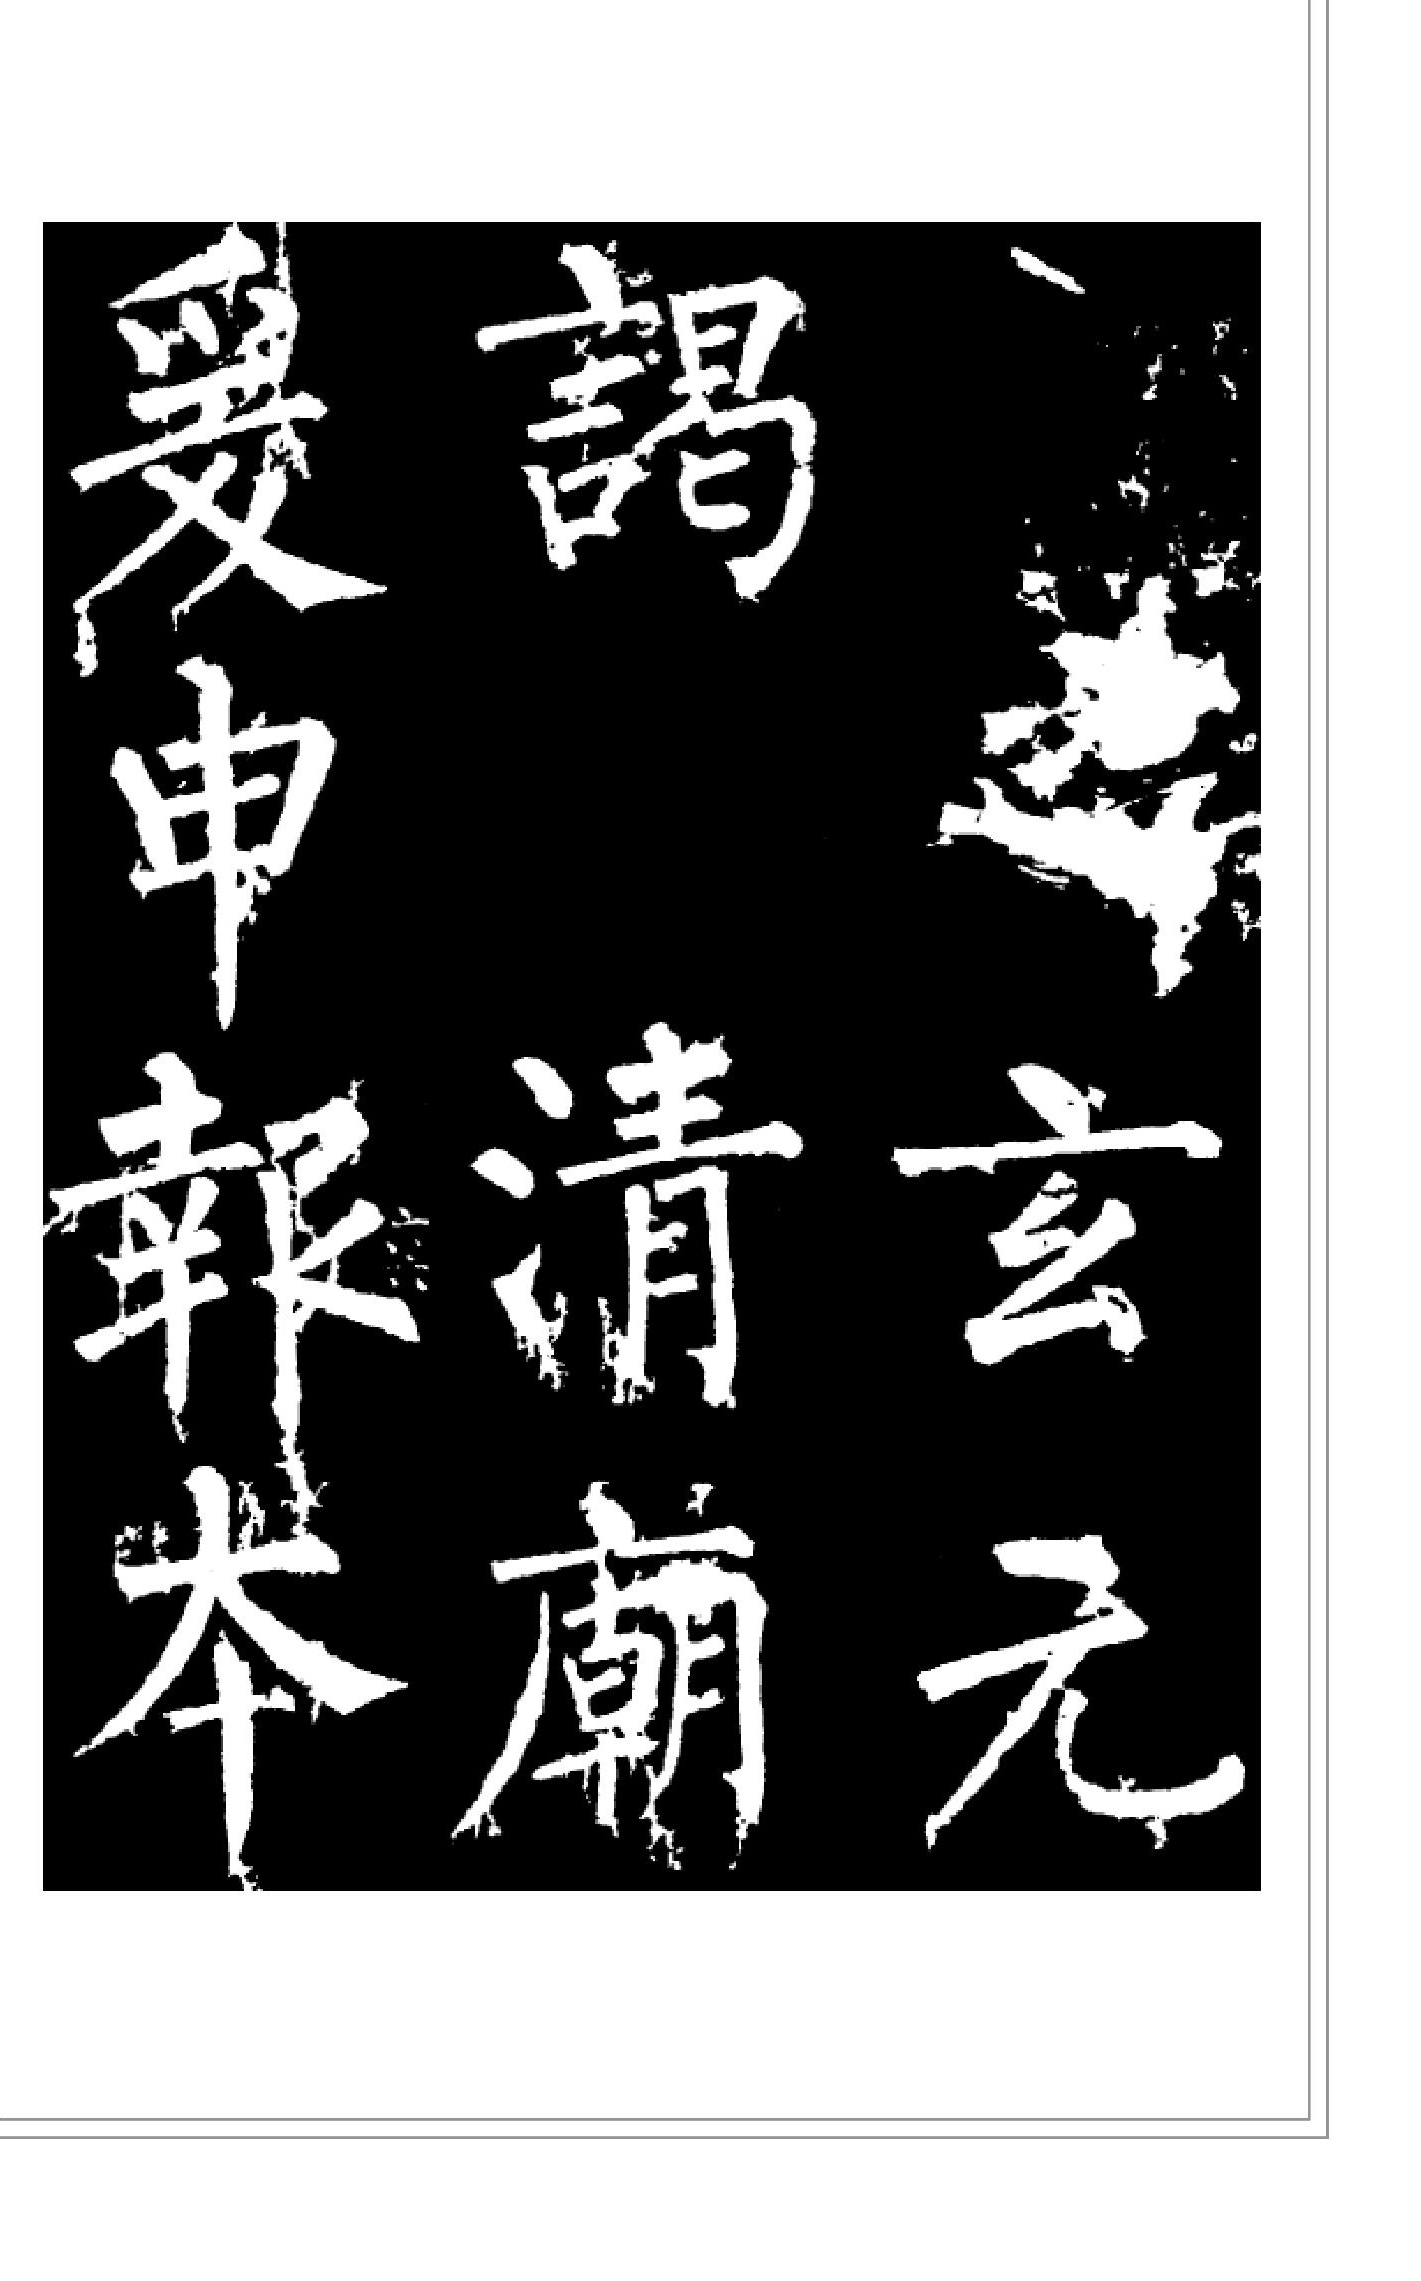 玄元
謁清廟
爰申報本